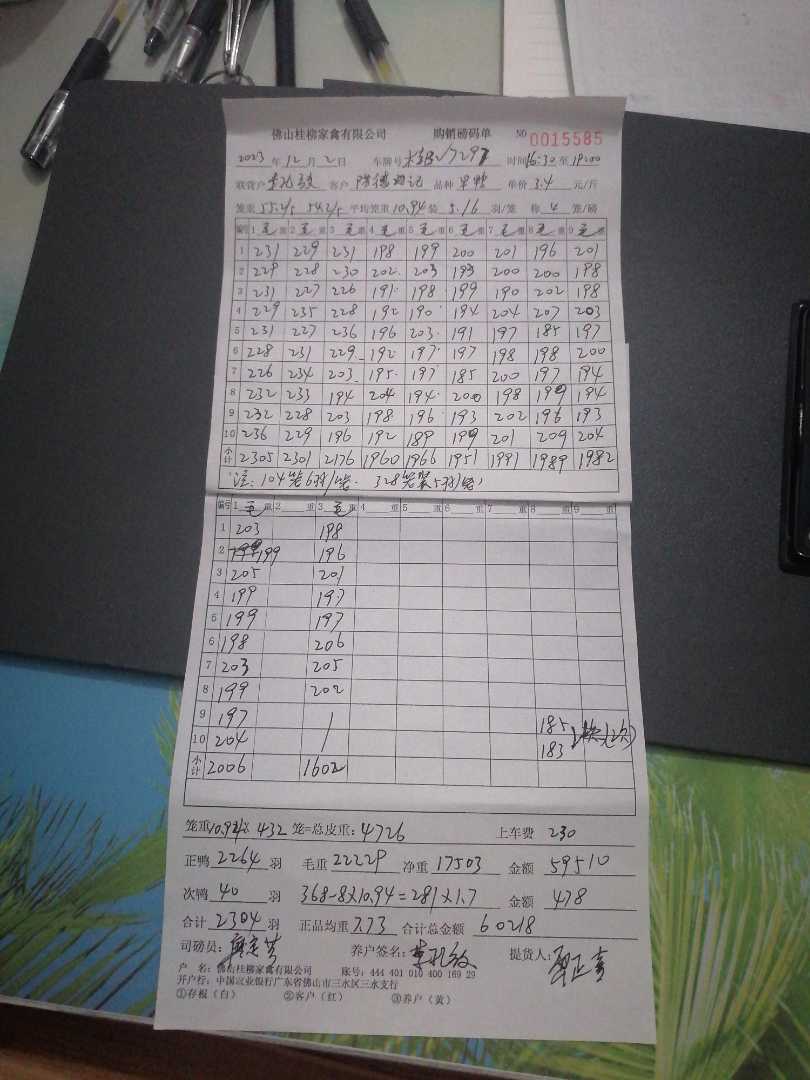 佛山桂柳家禽有限公司 购销磅码单 NO 0015585
2023年12月2日 车牌号 时间16:30至19:00
联营户 客户 品种 单价3.4元/斤
笼重55.2/5 54.2/5 平均笼重10.94 装5.16羽/笼 称4笼/磅
编号 1毛重 2毛重 3毛重 4毛重 5毛重 6毛重 7毛重 8毛重 9毛重
1 231 229 231 198 199 200 201 196 201
2 229 228 230 202 203 193 200 200 198
3 231 227 226 191 198 199 190 202 198
4 229 235 228 192 190 194 204 207 203
5 231 227 236 196 203 191 197 185 197
6 228 231 229 192 197 197 198 198 200
7 226 234 203 195 197 185 200 197 194
8 232 233 194 204 194 200 198 199 194
9 232 228 203 198 196 193 202 196 193
10 236 229 196 192 189 199 201 209 204
小计 2305 2301 2176 1960 1966 1951 1991 1989 1982
注:104笼6羽/笼. 328笼装5羽/笼
编号 1毛重 2 重 3毛重 4 重 5 重 6 重 7 重 8 重 9 重
1 203 198
2 199 196
3 205 201
4 199 197
5 199 197
6 198 206
7 203 205
8 199 202
9 197 185
10 204 183
小计 2006 1602
笼重10.94×432笼=总皮重:4726 上车费 230
正鸭2264羽 毛重22229 净重17503 金额59510
次鸭40羽 368-8×10.94=281×1.7 金额478
合计2304羽 正品均重7.73 合计总金额60218
司磅员: 养户签名: 提货人:
户 名:佛山桂柳家禽有限公司 账号:444 401 010 400 169 29
开户行:中国农业银行广东省佛山市三水区三水支行
①存根(白) ②客户(红) ③养户(黄)